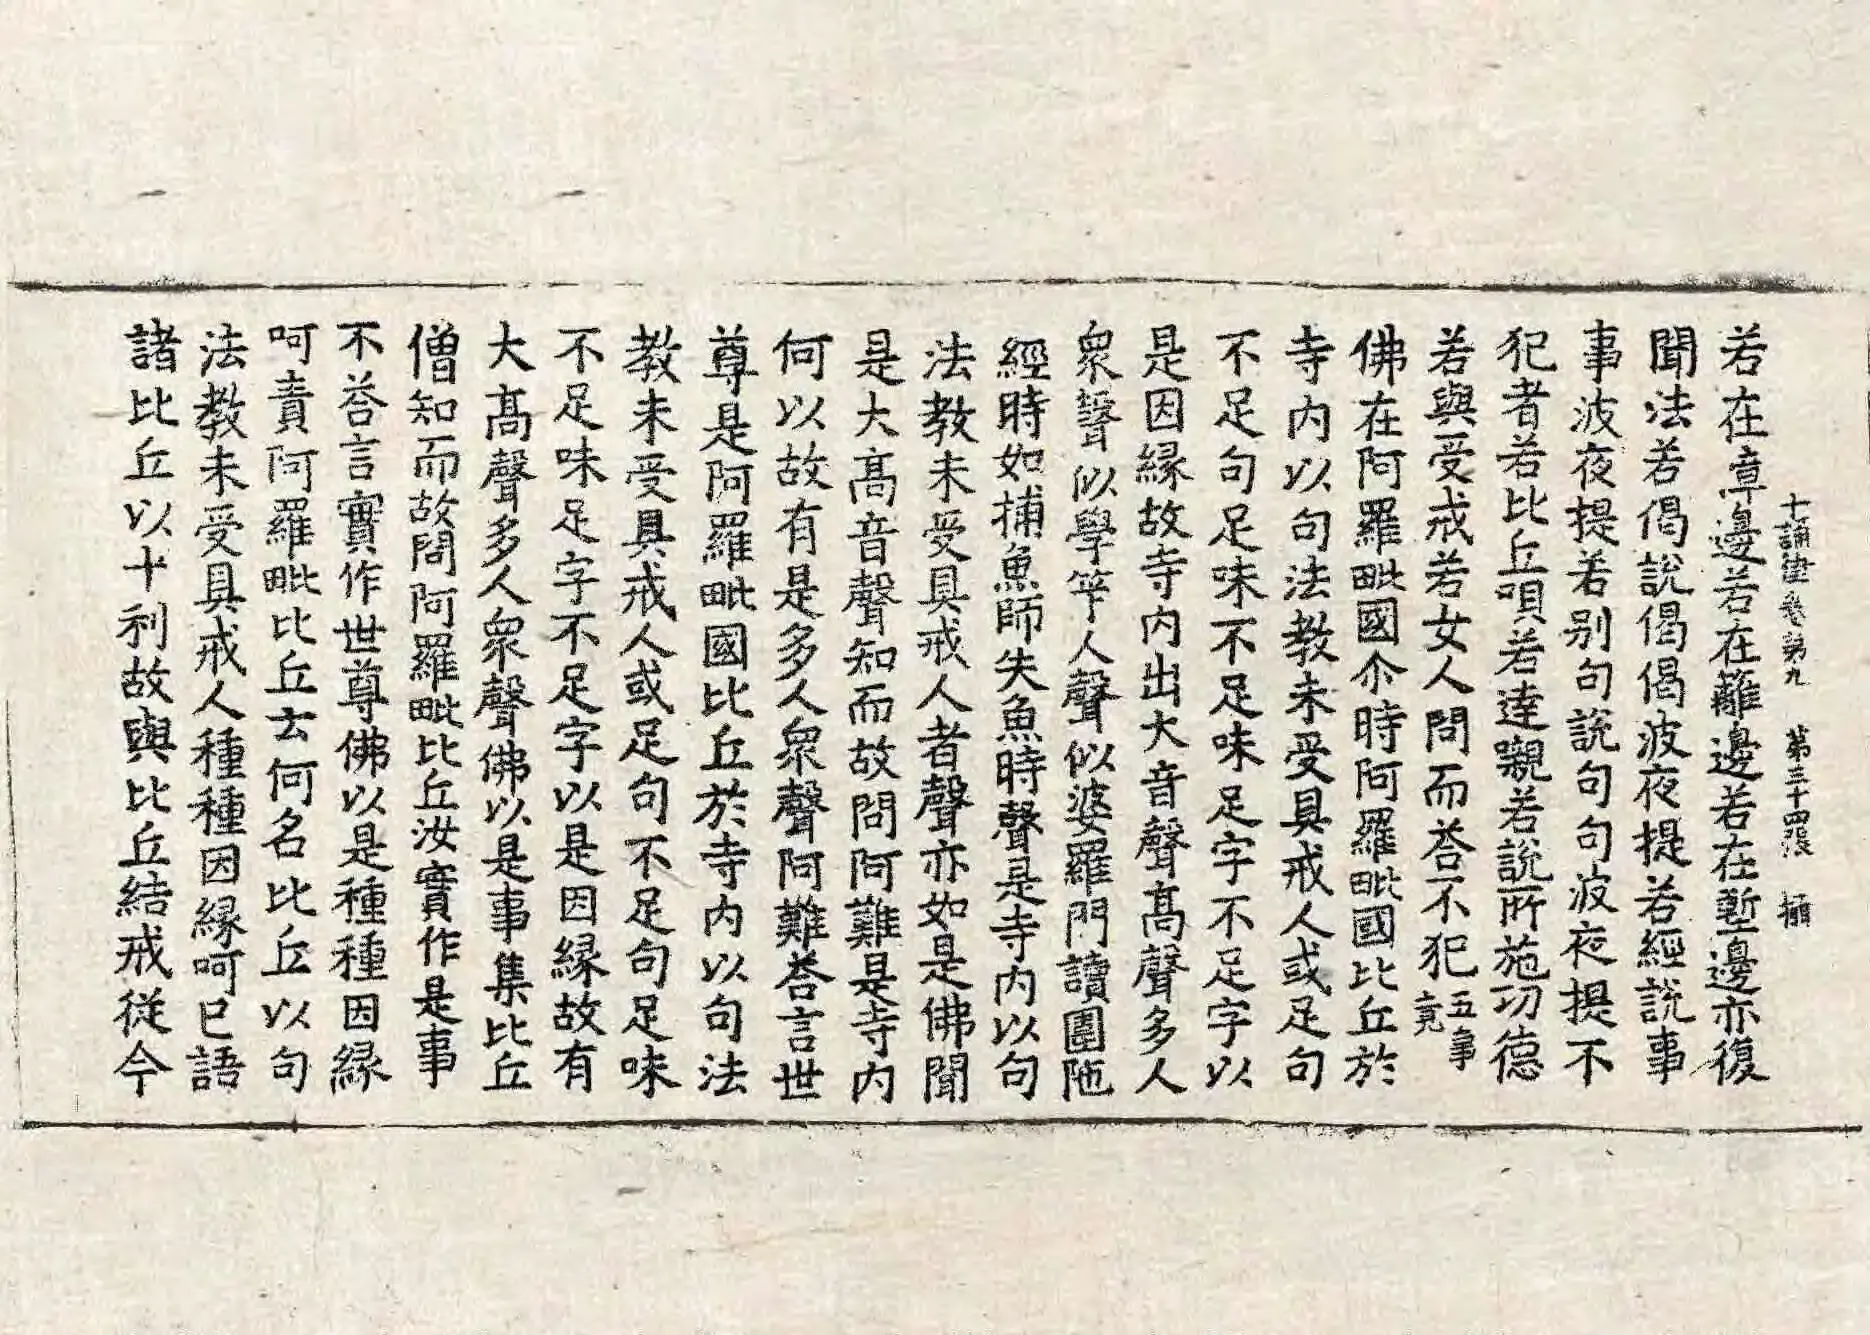 十誦律卷第九　第三十四張　攝
若在𭏟邊若在籬邊若在塹邊亦復
聞法若偈說偈偈波夜提若經說事
事波夜提若别句說句句波夜提不
犯者若比丘唄若達嚫若說所施功德
若與受戒若女人問而荅不犯五事竟
佛在阿羅毗國尒時阿羅毗國比丘於
寺内以句法教未受具戒人或足句
不足句足味不足味足字不足字以
是因縁故寺内出大音聲髙聲多人
衆聲似學筭人聲似婆羅門讀圍陁
經時如捕魚師失魚時聲是寺内以句
法教未受具戒人者聲亦如是佛聞
是大髙音聲知而故問阿難是寺内
何以故有是多人衆聲阿難荅言世
尊是阿羅毗國比丘於寺内以句法
教未受具戒人或足句不足句足味
不足味足字不足字以是因縁故有
大髙聲多人衆聲佛以是事集比丘
僧知而故問阿羅毗比丘汝實作是事
不荅言實作世尊佛以是種種因縁
呵責阿羅毗比丘云何名比丘以句
法教未受具戒人種種因縁呵已語
諸比丘以十利故與比丘結戒従今